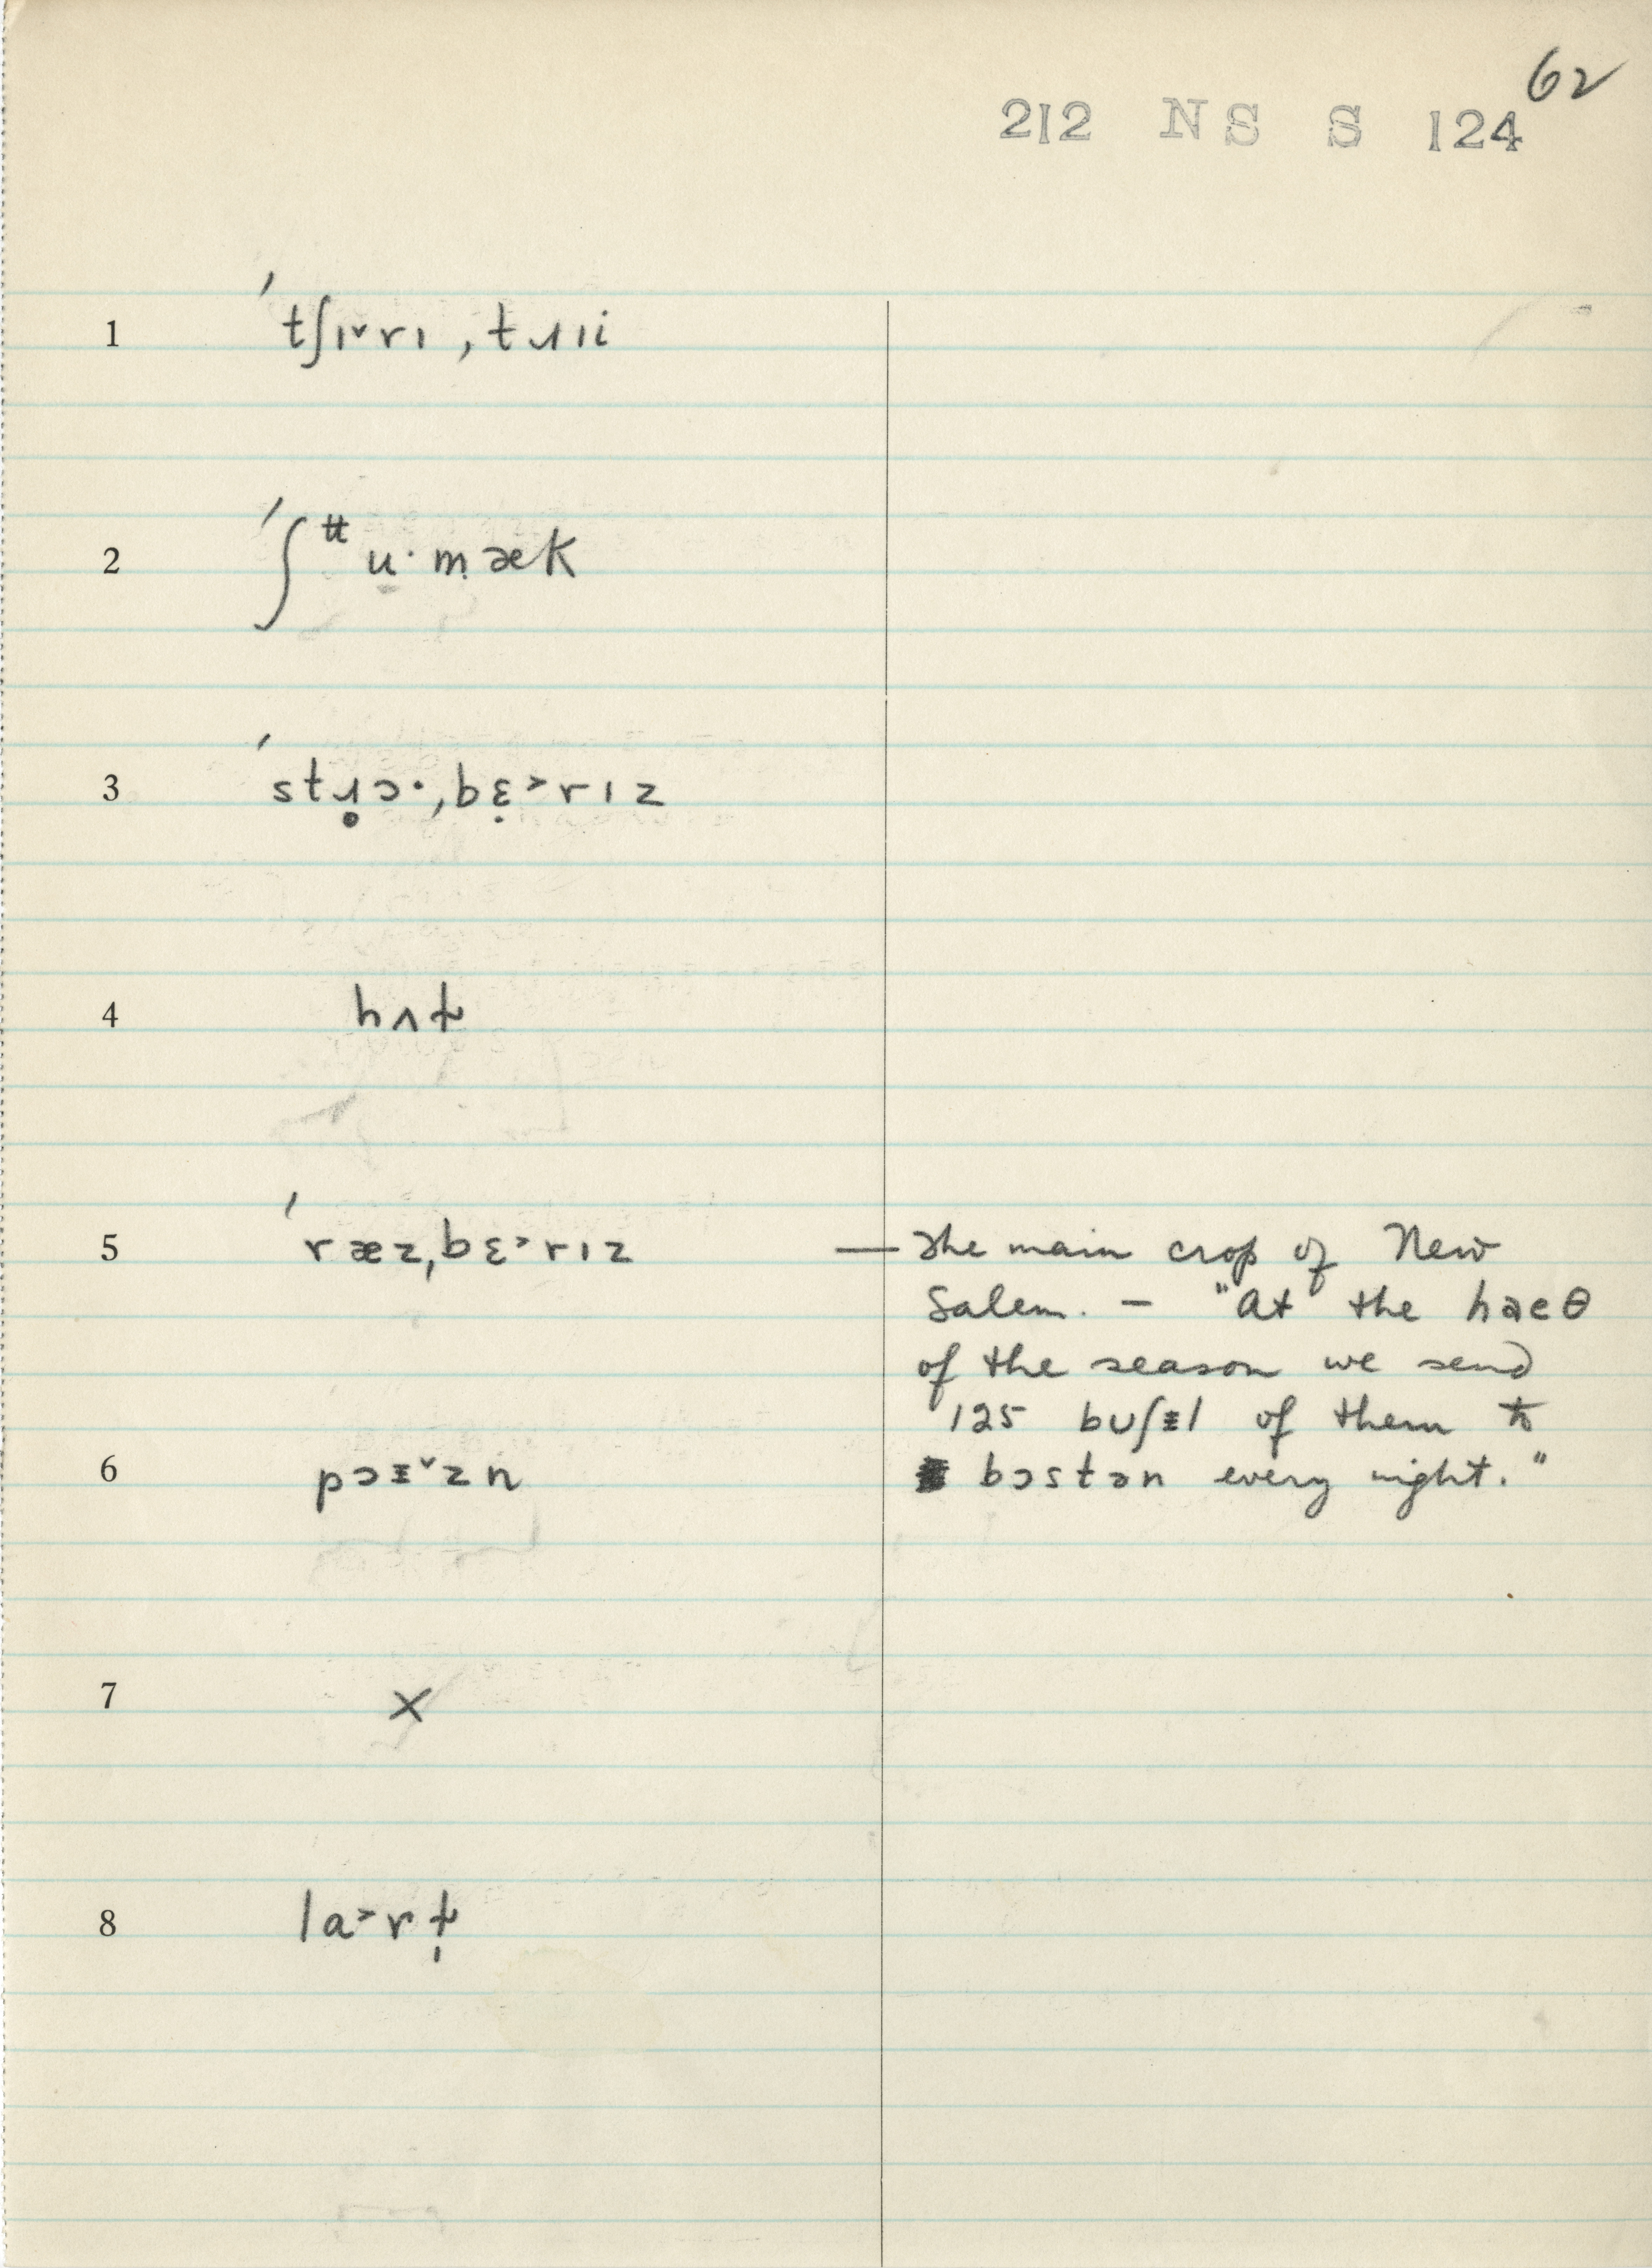 62
212 NS S 124
1 ˈtʃɪ˅rɪ ˌtɹɪi
2 ˈʃʉu·mæk
3 ˈstɹ̥ɔ·ˌbɛ̣˃rɪz
4 hʌt̬
5 ˈræzˌbɛ˃rɪz — The main crop of New
Salem. — "At the haeθ
of the season we send
125 bʊʃᵻl of them to
bɔstən every night."
6 pɔᵻ˅zn
7 X
8 la˃rt̬̩